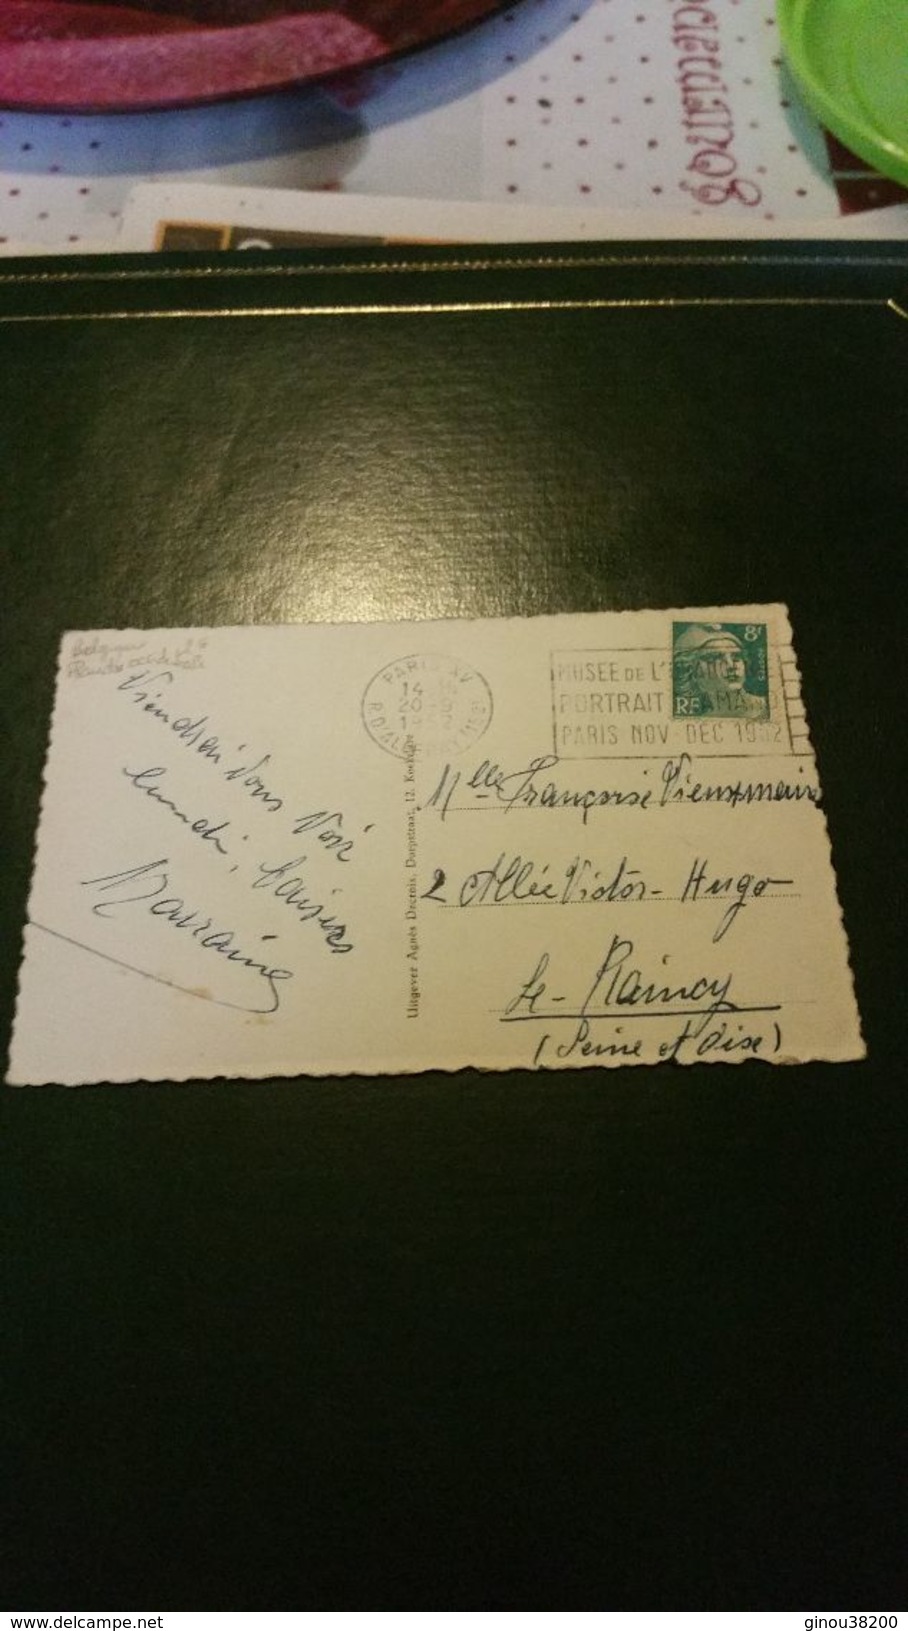 Gourmand
Belgique
Flandre occidentale
Viendrai vous voir
lundi, baisers
Marraine
Uitgever Agnès Decroix, Dorpstraat, 12.
PARIS XV
14
20-9
1952
MUSEE DE L'
PORTRAIT
PARIS NOV-DEC 1952
8F
POSTES
RF
Mlle Françoise
2 Allée Victor-Hugo
Le-Raincy
(Seine et Oise)
www.delcampe.net
ginou38200